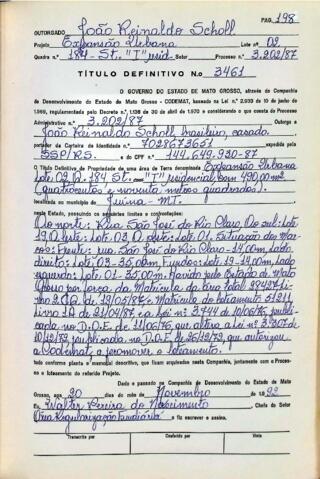 PAG. 198
OUTORGADO João Reinaldo Scholl
Projeto Expansão Urbana Lote nº 02
Quadra n.º 184 St. "T" resid Processo n.º 3.202/87
TÍTULO DEFINITIVO N.o 3461
O GOVERNO DO ESTADO DE MATO GROSSO, através da Companhia
de Desenvolvimento do Estado de Mato Grosso - CODEMAT, baseado na Lei n.º 2.933 de 10 de junho de
1969, regulamentada pelo Decreto n.º 1.138 de 30 de abril de 1970 e considerando o que consta do Processo
Administrativo n.º 3.202/87 Outorga a
João Reinaldo Scholl brasileiro, casado.
portador da Carteira de Identidade n.º 7028673651 expedida pela
SSP/RS. e do CPF nº 144,649,930-87
O Título Definitivo de Propriedade de uma área de Terra denominada Expansão Urbana
Lote 02, Q. 184, St. "T" residencial com 490,00 m²
(quatrocentos e noventa metros quadrados).
localizada no município de Juína - MT.
neste Estado, possuindo os seguintes limites e confrontações:
Ao norte: Rua São José do Rio Claro. Ao sul: Lote
19. A leste: Lote. 03. A oeste: Lote. 01. Situação dos Mar-
cos: Frente: rua. São José do Rio Claro - 14,00m. Lado
direito: Lote. 03 - 35,00m. Fundos: Lote. 19 - 14,00m. Lado
esquerdo: Lote. 01 - 35,00m. Havido pelo Estado de Mato
Grosso por força da Matrícula da área total 38427 Li-
vro 2. de 19/05/87 e Matrícula do loteamento 51211
Livro de 21/04/87 Lei nº 3.744 de 10/06/76, publi-
cada no D.O.E. de 11/06/76, que altera a Lei nº 3.307 de
10/12/72, publicada no D.O.E. de 26/12/72, que autorizou
a Codemat, a promover o loteamento.
tudo conforme planta e memorial descritivo, que ficam arquivados nesta Companhia, juntamente com o Proces-
so e loteamento do referido Projeto.
Dado e passado na Companhia de Desenvolvimento do Estado de Mato
Grosso, aos 30 dias do mês de Novembro de 1.992
Eu, Walter Pereira do Nascimento, Chefe do Setor
Regularização Fundiária fiz escrever e assino.
Transcrito por Conferido por Visto